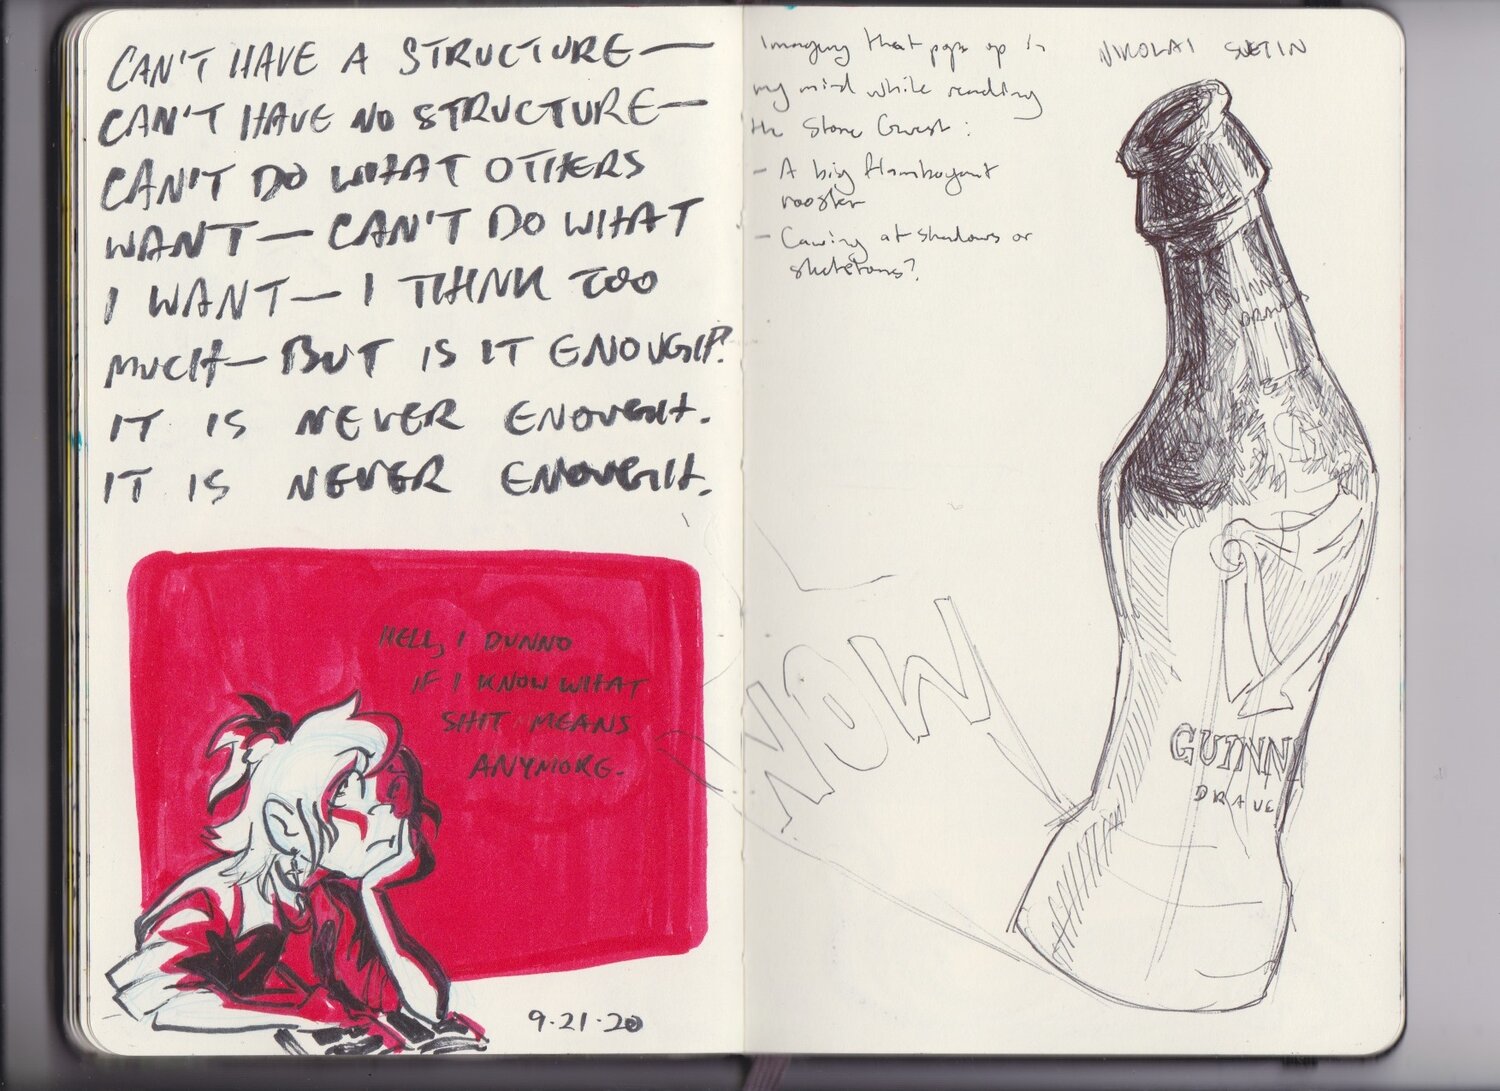 CAN'T HAVE A STRUCTURE—
CAN'T HAVE NO STRUCTURE—
CAN'T DO WHAT OTHERS
WANT— CAN'T DO WHAT
I WANT— I THINK TOO
MUCH— BUT IS IT ENOUGH?
IT IS NEVER ENOUGH.
IT IS NEVER ENOUGH.
HELL, I DUNNO
IF I KNOW WHAT
SHIT MEANS
ANYMORE.
9.21.20
Imagery that pops up in
my mind while reading
the Stone Guest:
- A big flamboyant
rooster
- Cawing at shadows or
skeletons?
NIKOLAI SUETIN
GUINN
DRAU
WOW
GUINN
DRAUG